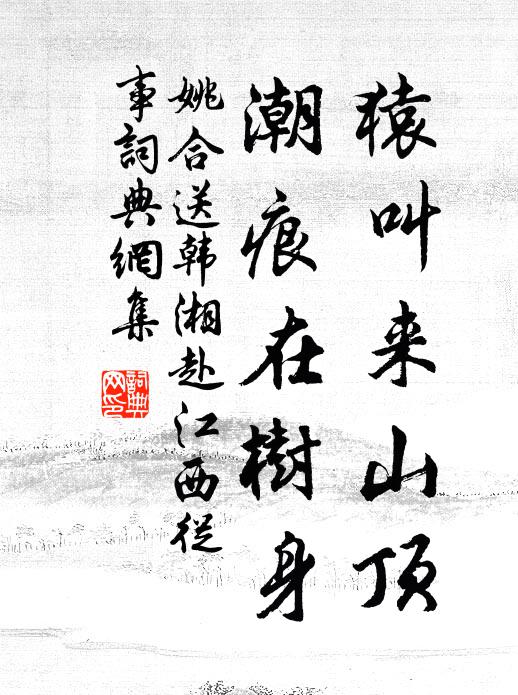 猿叫来山顶
潮痕在樹身
姚合送韩湘赴江西從
事詞典網集
詞典
网印